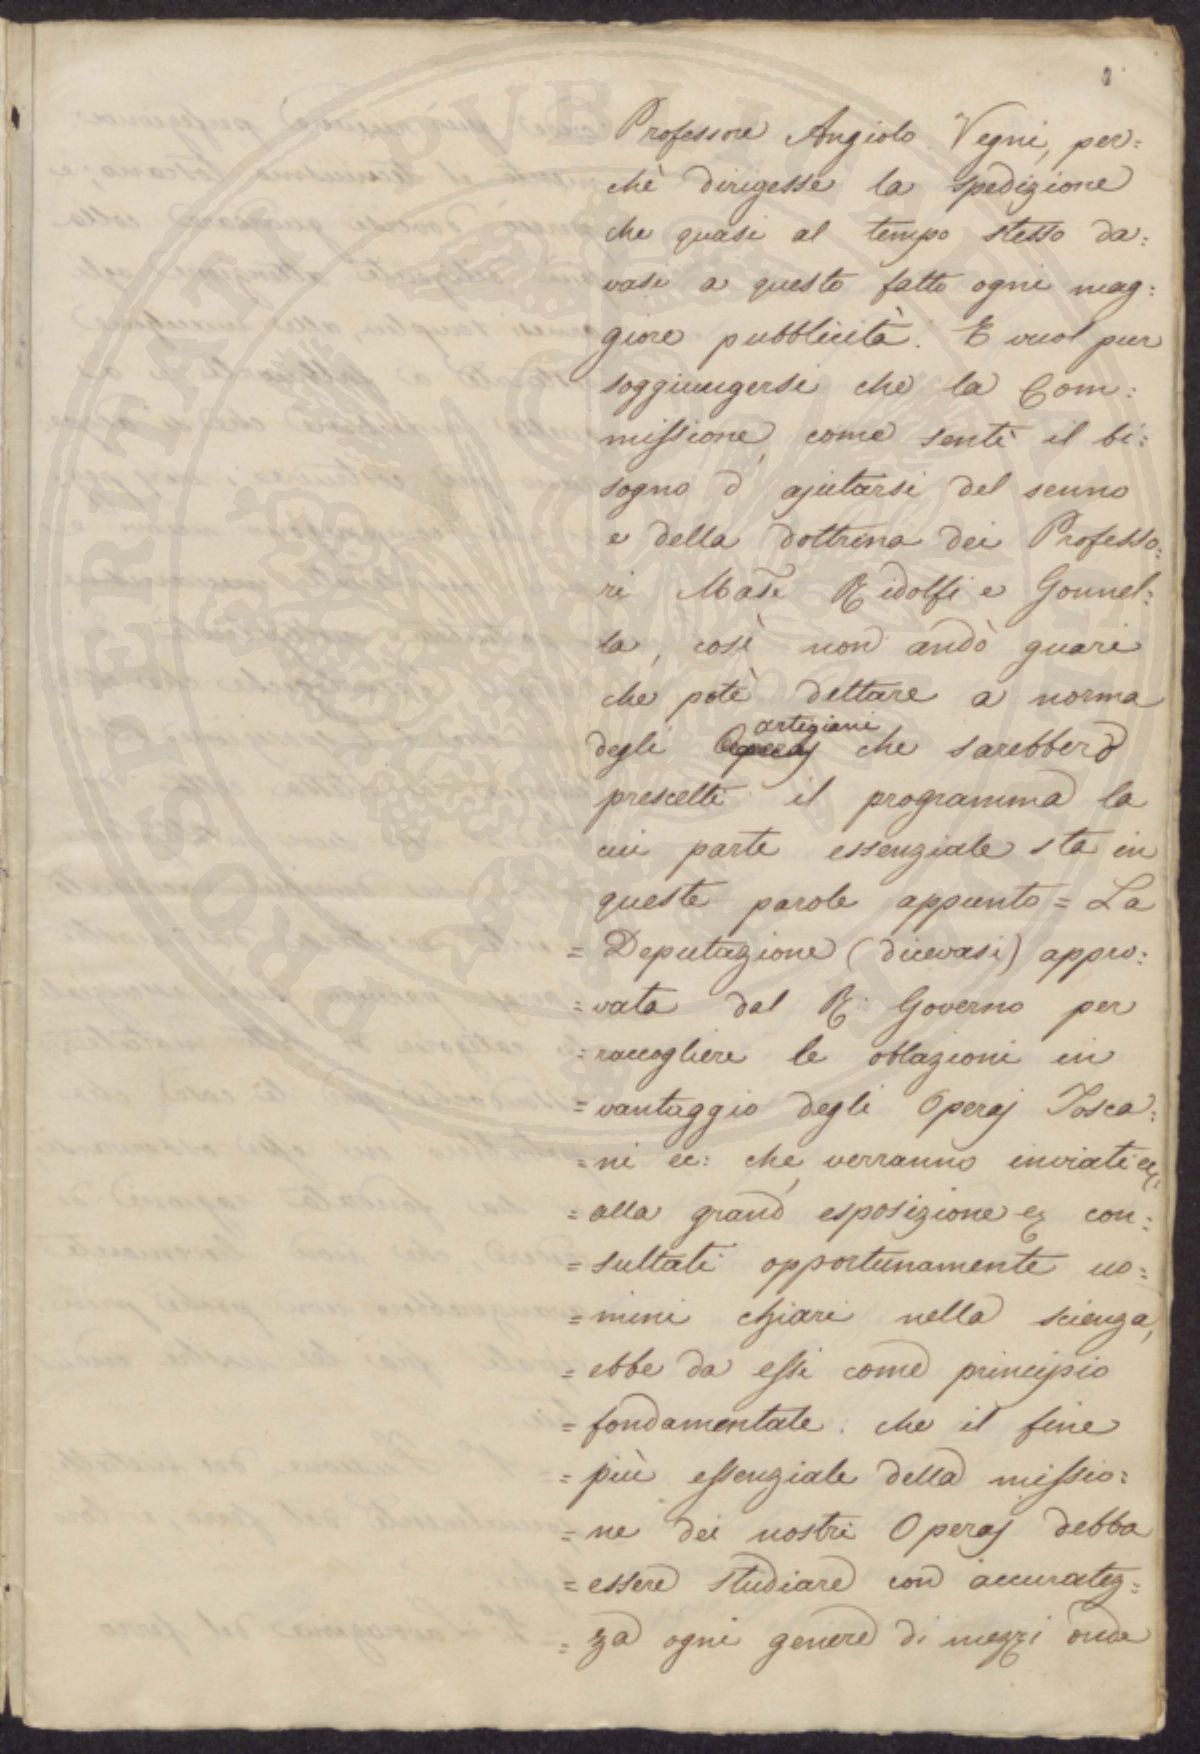 Professore Angiolo Vegni, per=
chè dirigesse la spedizione
che quasi al tempo stesso da=
vasi a questo fatto ogni mag=
giore pubblicità. E vuol pur
soggiungersi che la Com=
missione, come sentì il bi=
sogno d' ajutarsi del senno
e della dottrina dei Professo=
ri Ridolfi e Gonnel=
la, così non andò guari
che potè dettare a norma
artigiani
degli Operaj che sarebbero
prescelti il programma la
cui parte essenziale sta in
queste parole appunto = La
= Deputazione (dicevasi) appro=
= vata dal R: Governo per
= raccogliere le oblazioni in
= vantaggio degli Operaj Tosca=
= ni ec: che verranno inviati ec:
= alla grand' esposizione ec con=
= sultati opportunamente uo=
= mini chiari nella scienza,
= ebbe da essi come principio
= fondamentale: che il fine
= più essenziale della missio=
= ne dei nostri Operaj debba
= essere studiare con accuratez=
= za ogni genere di mezzi onde
PROSPERITATI PVBLICAE